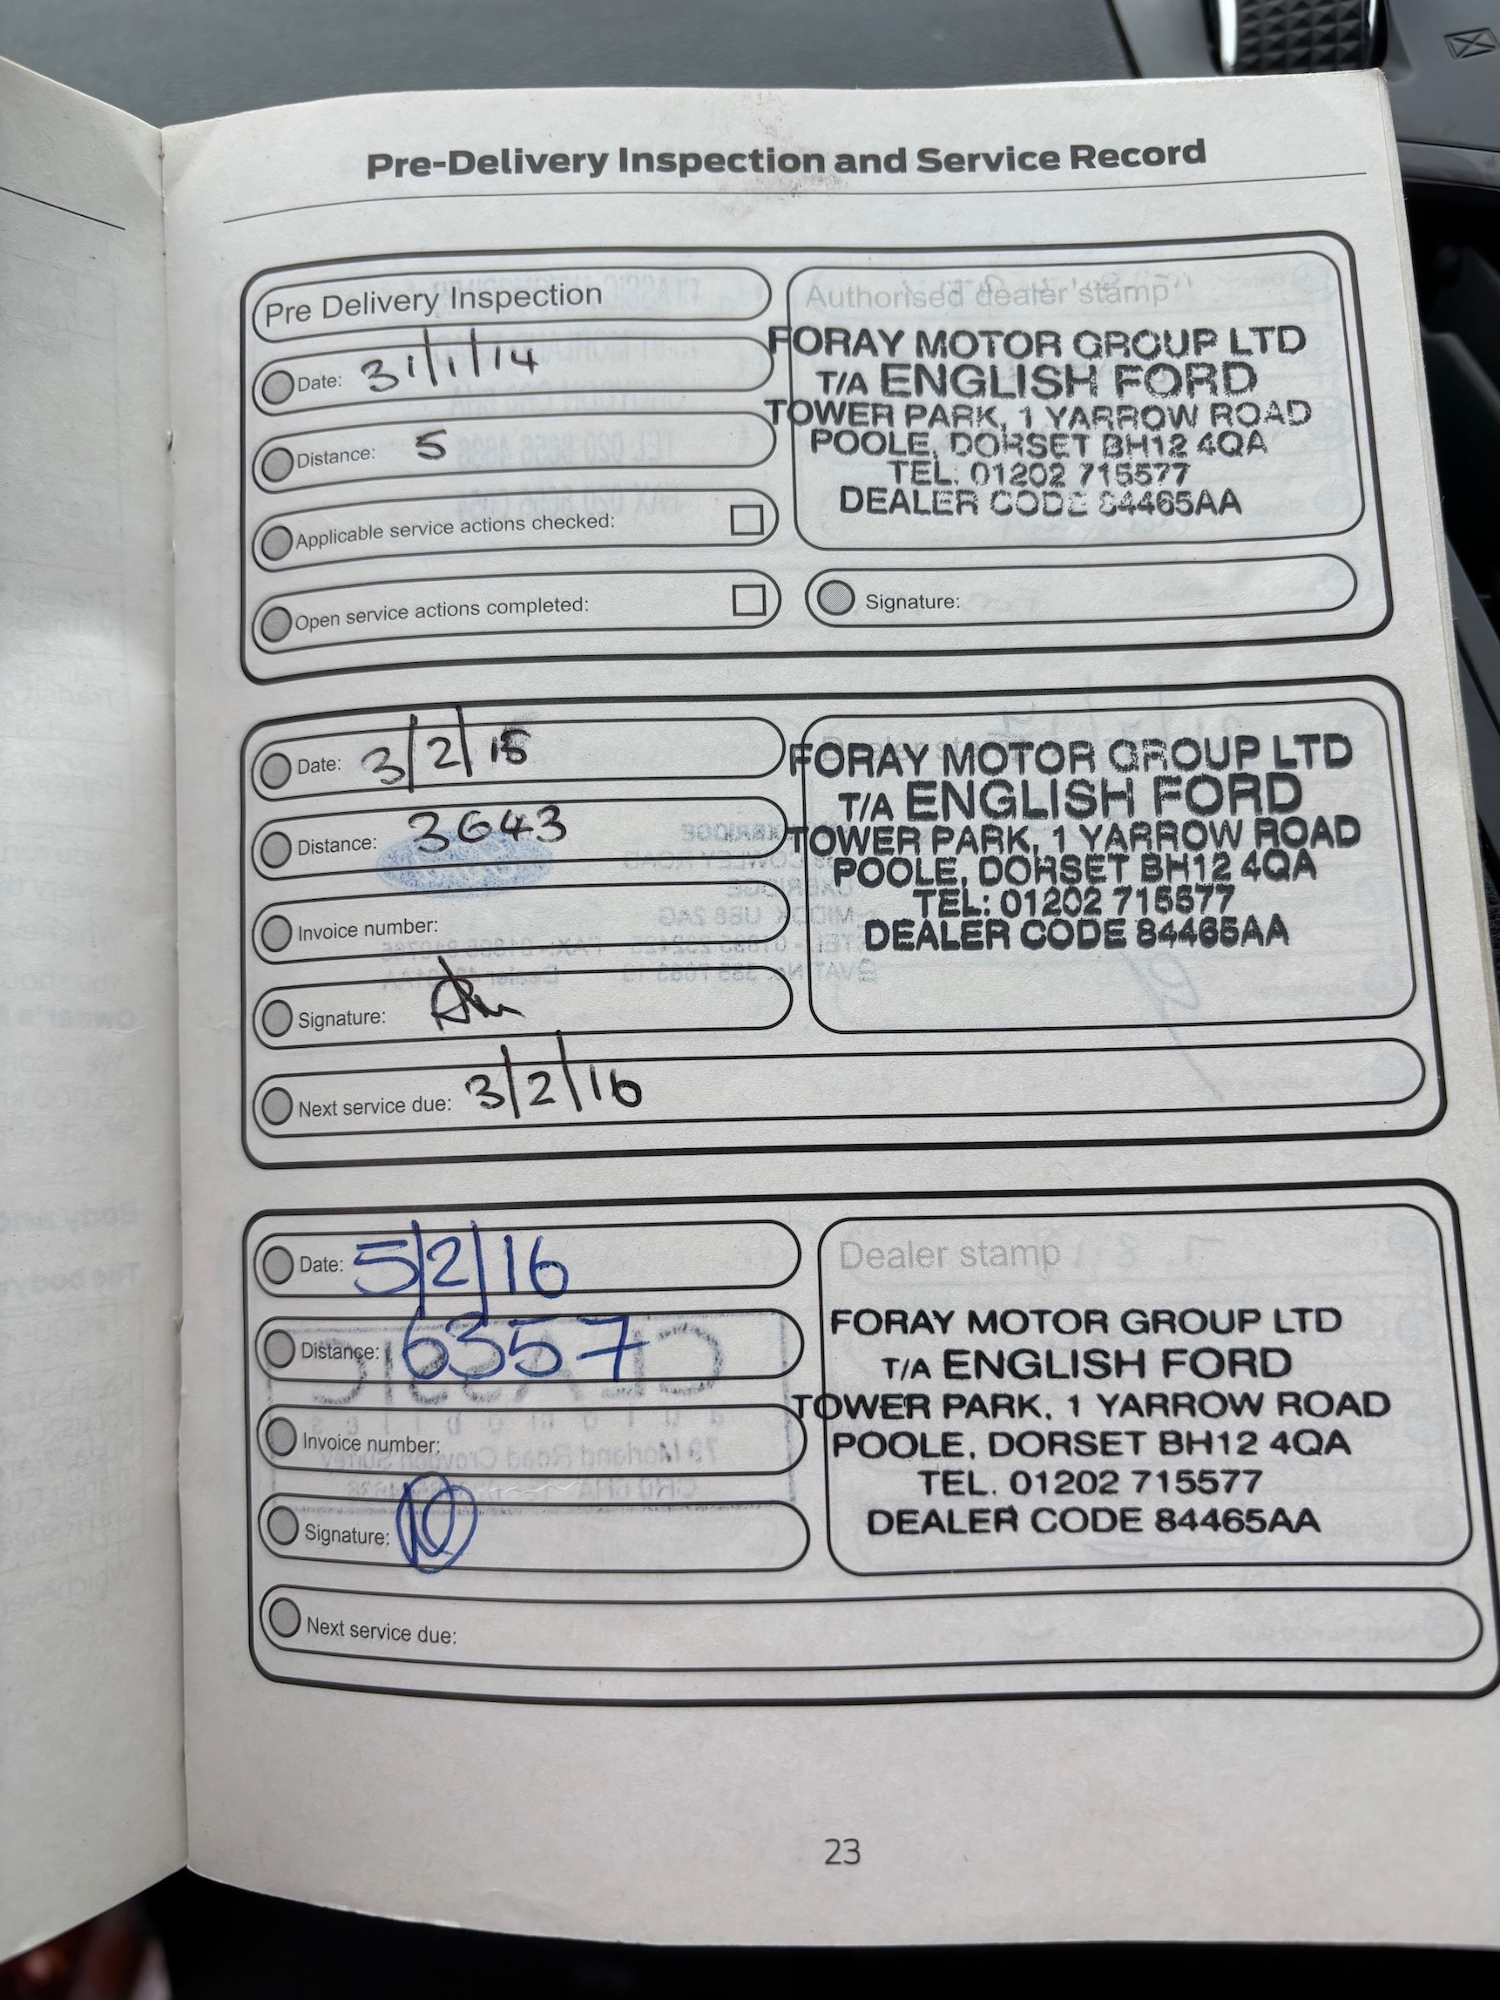 Pre-Delivery Inspection and Service Record
Pre Delivery Inspection
Date: 31/1/14
Distance: 5
Applicable service actions checked:
Open service actions completed:
Authorised dealer stamp
FORAY MOTOR GROUP LTD
T/A ENGLISH FORD
TOWER PARK, 1 YARROW ROAD
POOLE, DORSET BH12 4QA
TEL: 01202 715577
DEALER CODE 84465AA
Signature:
Date: 3/2/15
Distance: 3643
Invoice number:
Signature:
Next service due: 3/2/16
FORAY MOTOR GROUP LTD
T/A ENGLISH FORD
TOWER PARK, 1 YARROW ROAD
POOLE, DORSET BH12 4QA
TEL: 01202 715577
DEALER CODE 84465AA
Date: 5/2/16
Distance: 6357
Invoice number:
Signature:
Next service due:
Dealer stamp
FORAY MOTOR GROUP LTD
T/A ENGLISH FORD
TOWER PARK, 1 YARROW ROAD
POOLE, DORSET BH12 4QA
TEL. 01202 715577
DEALER CODE 84465AA
23